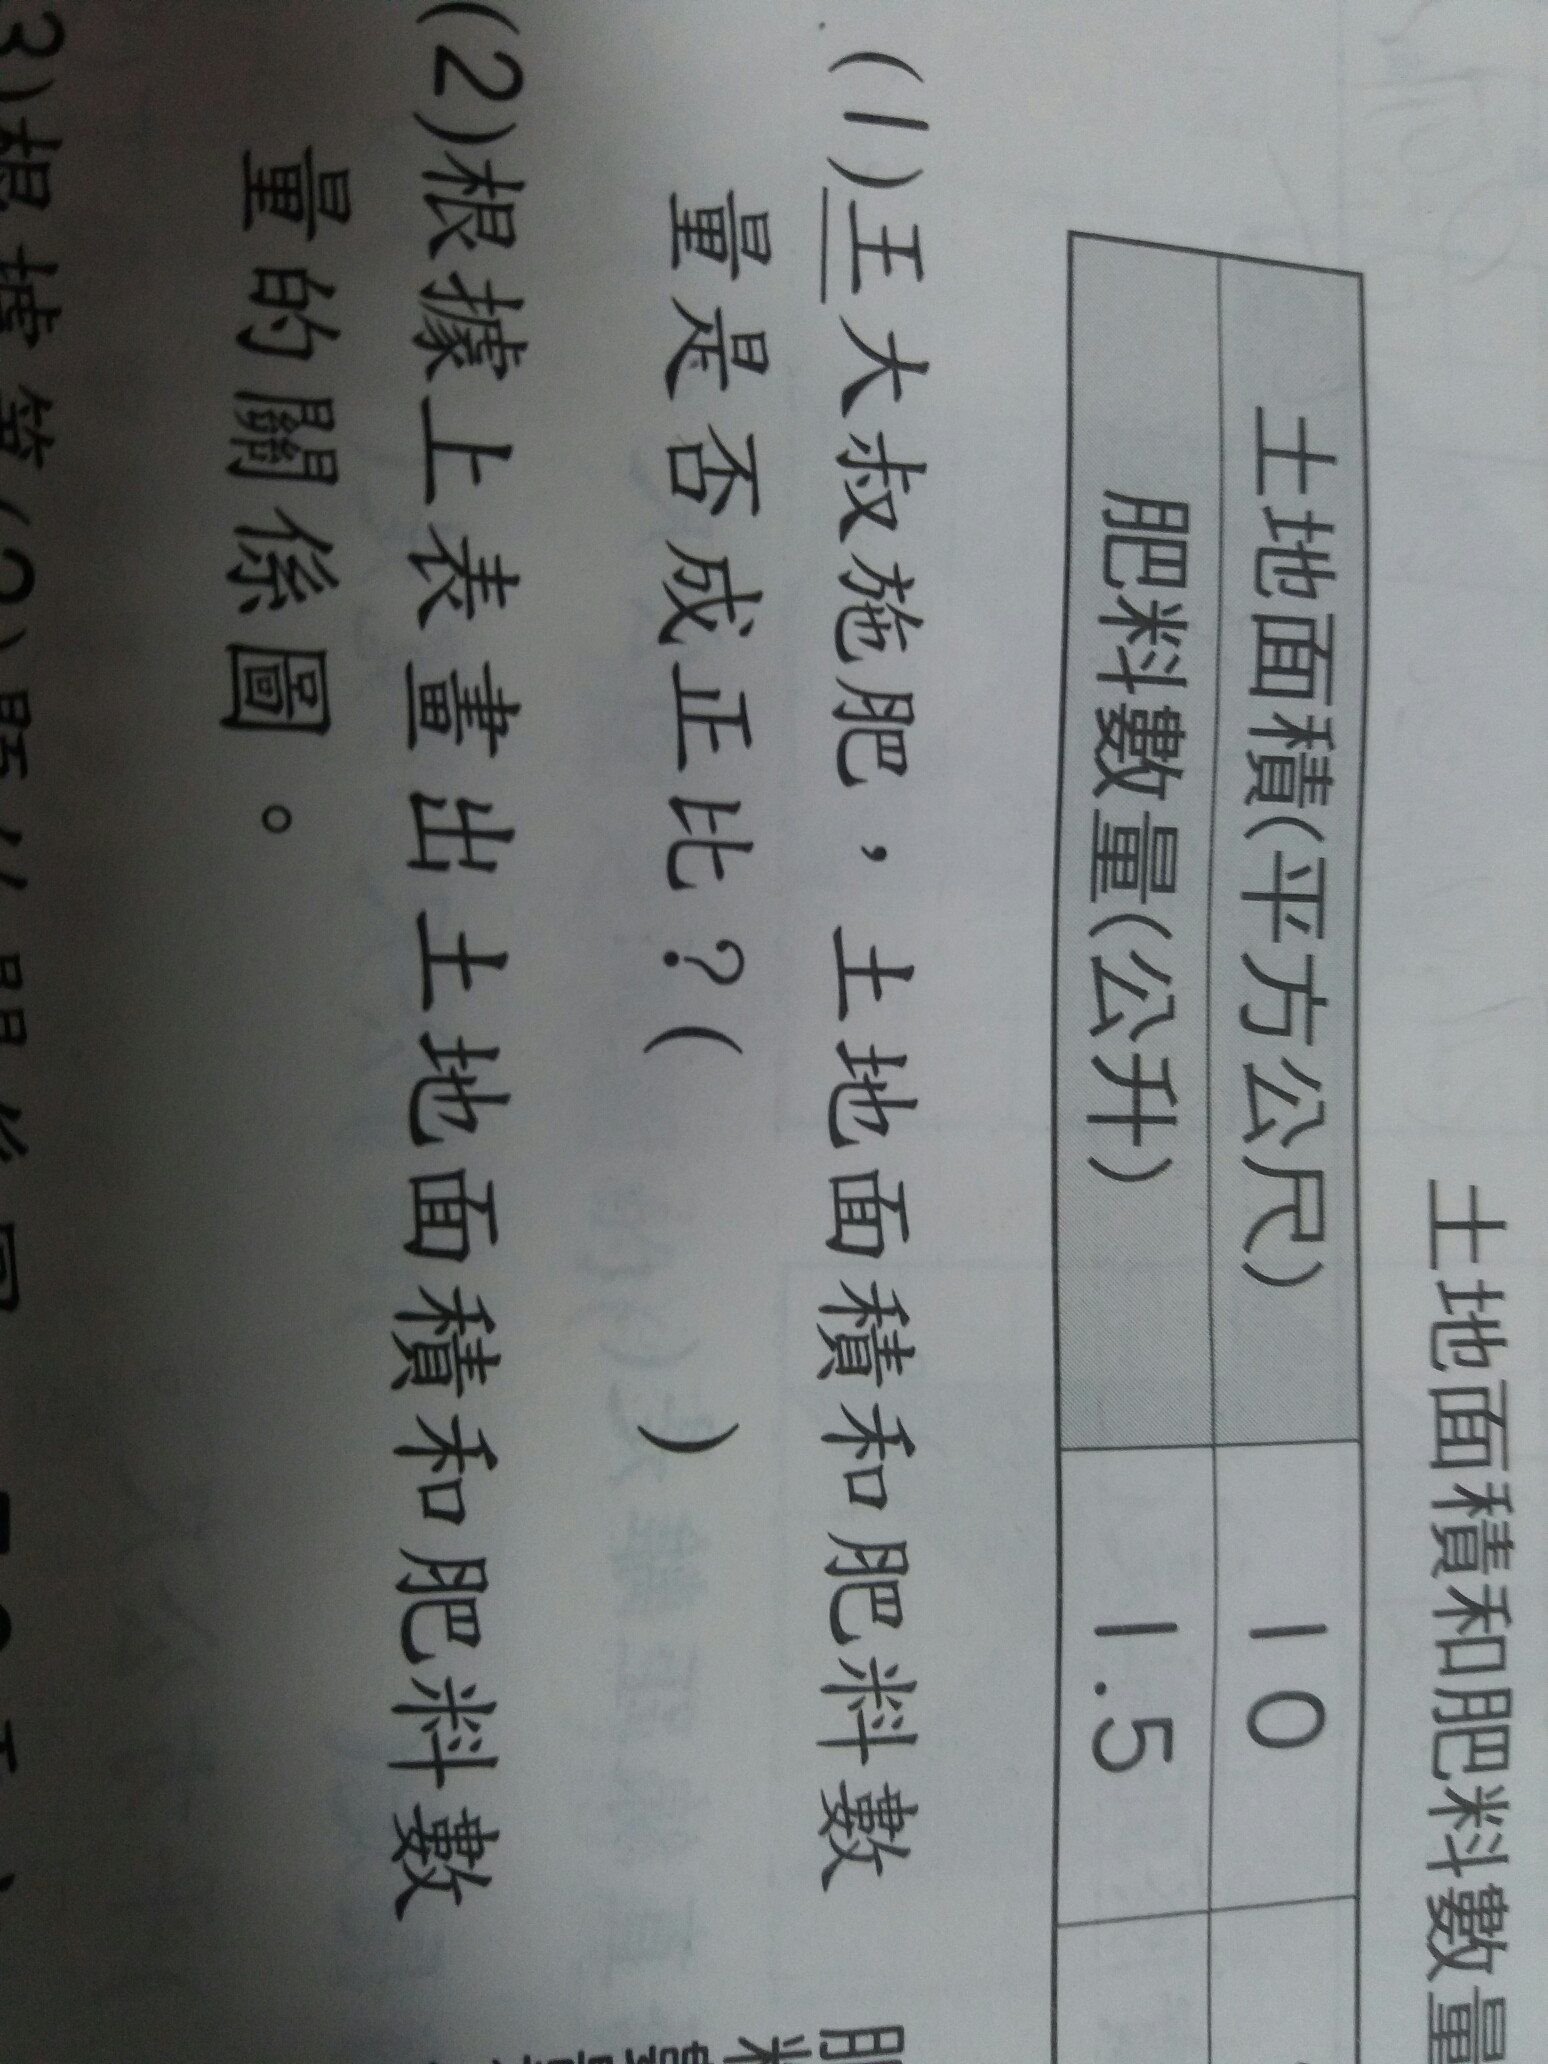 土地面積和肥料數量
土地面積(平方公尺) 10
肥料數量(公升) 1.5
(1)王大叔施肥，土地面積和肥料數
量是否成正比？( )
(2)根據上表畫出土地面積和肥料數
量的關係圖。